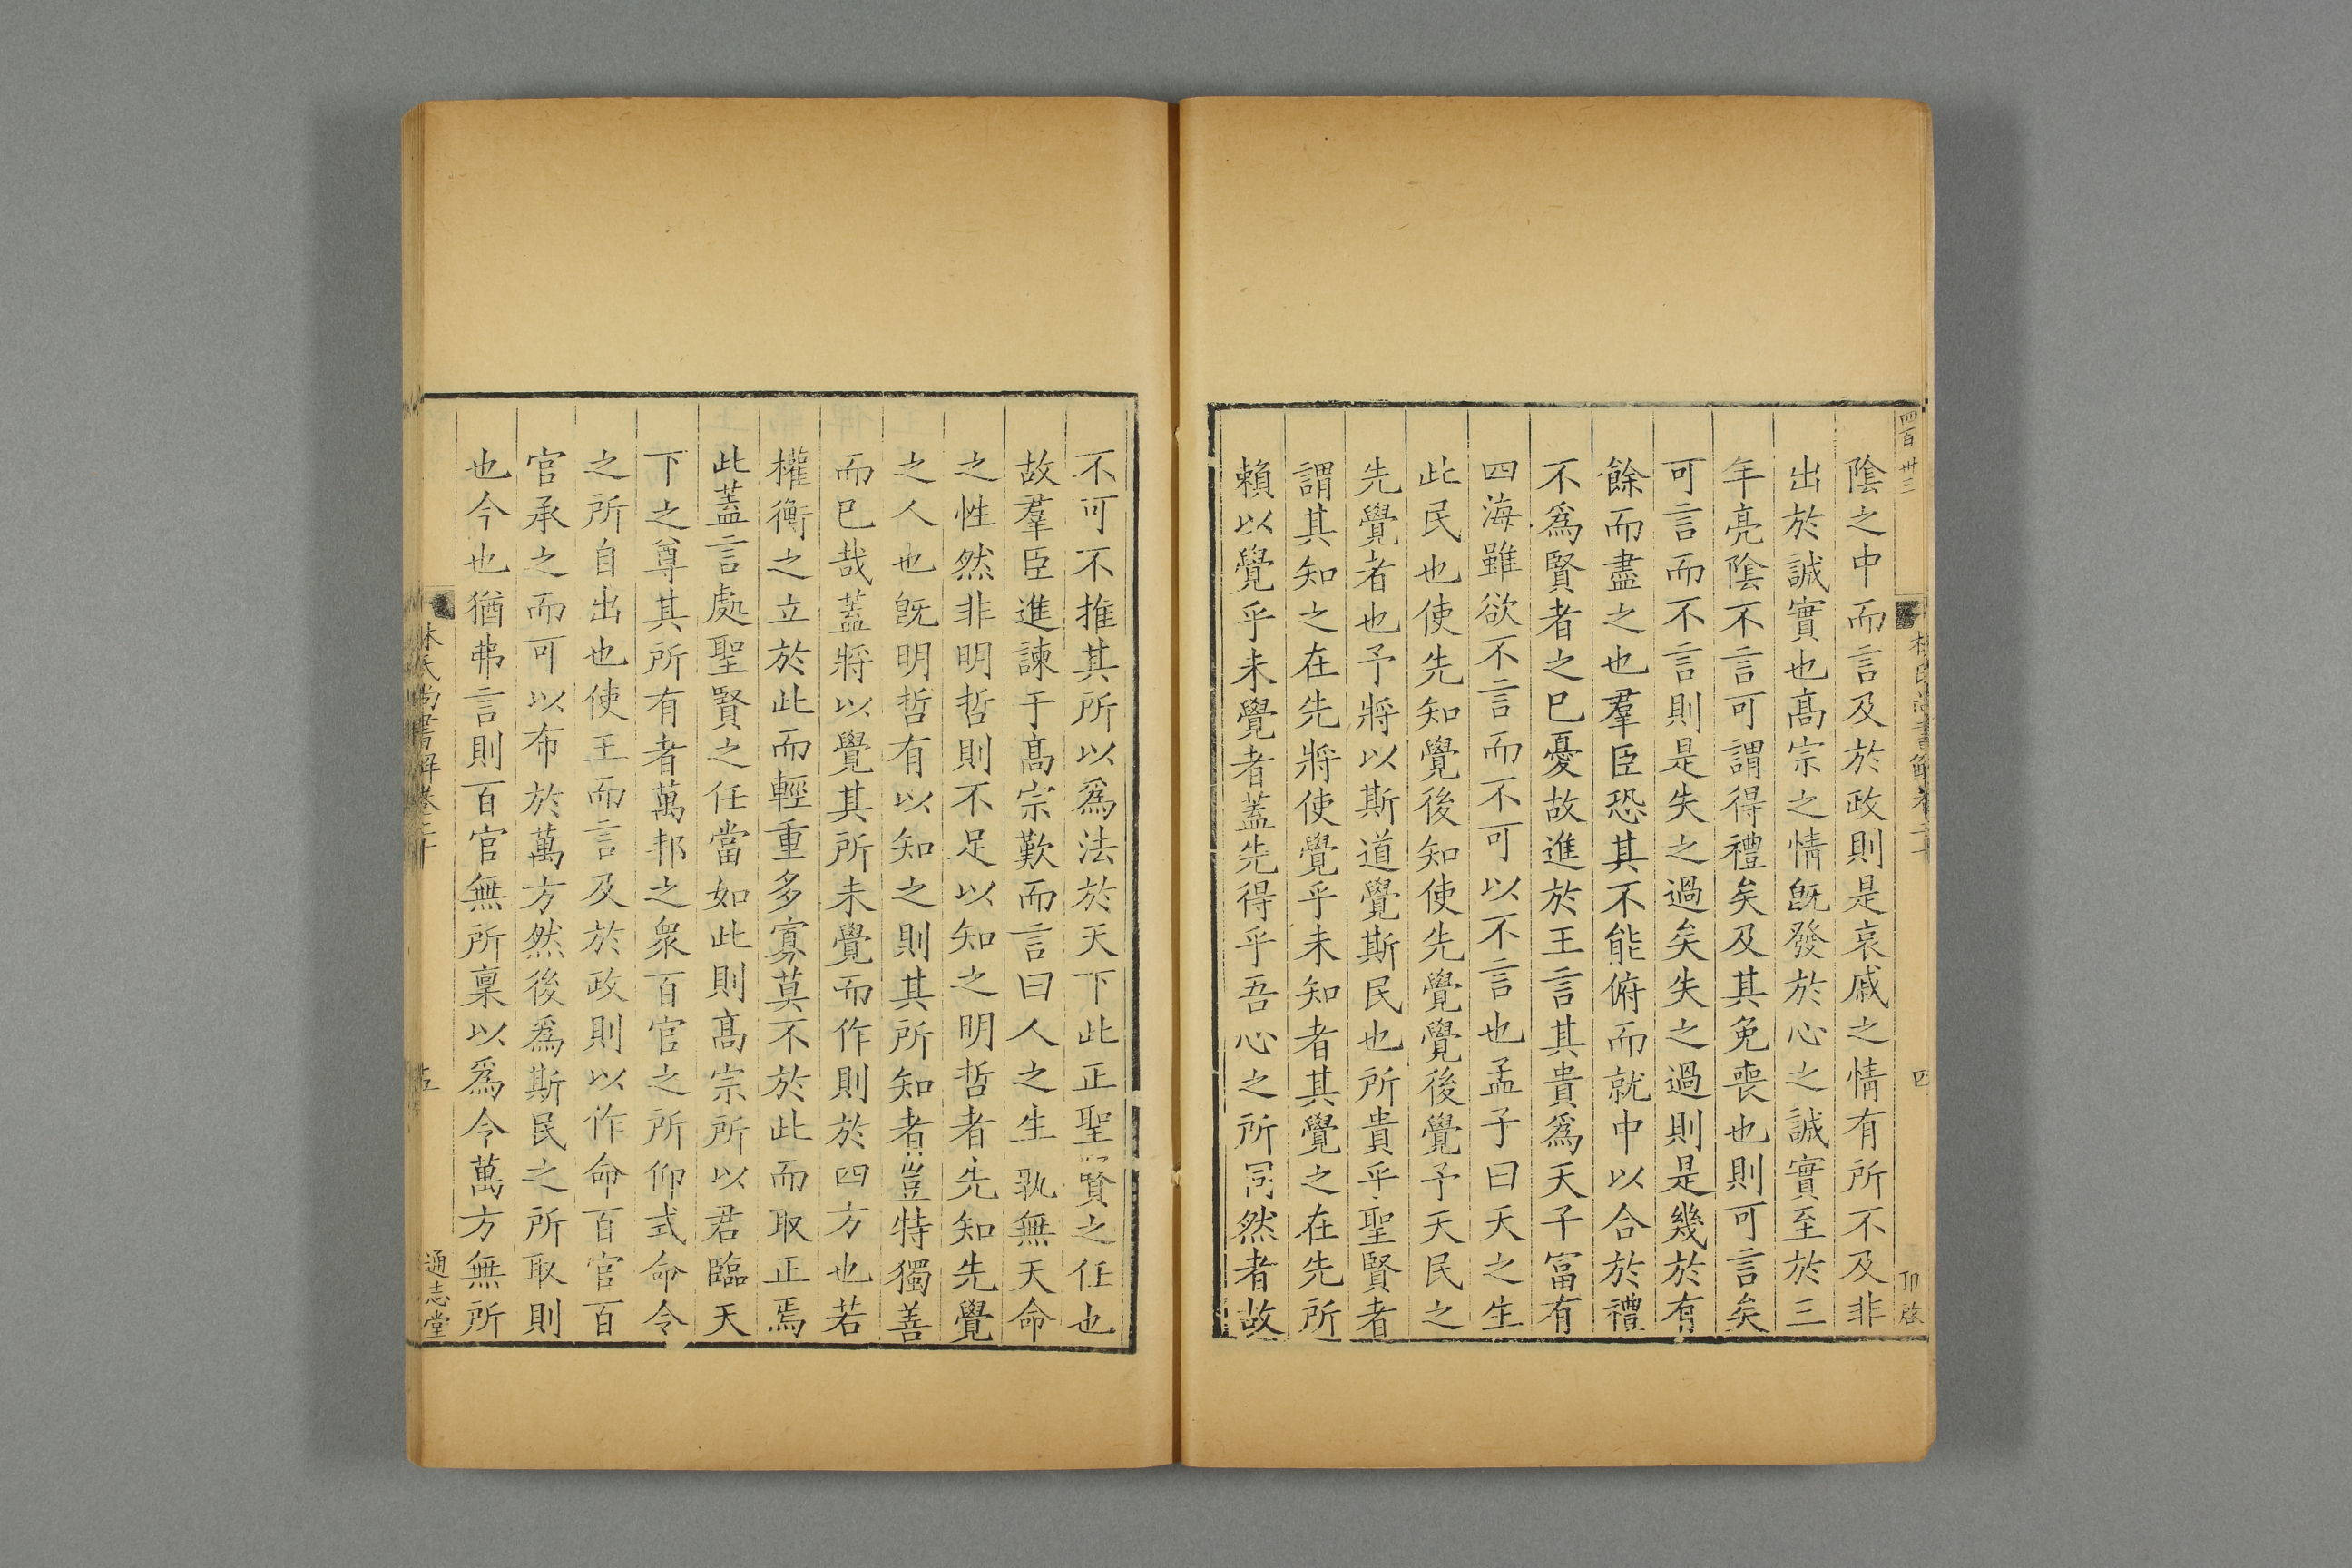 四百卅三
林氏尚書解卷二十
四
卬
陰之中而言及於政則是哀戚之情有所不及非
出於誠實也髙宗之情旣發於心之誠實至於三
年亮陰不言可謂得禮矣及其免喪也則可言矣
可言而不言則是失之過矣失之過則是幾於有
餘而盡之也羣臣恐其不能俯而就中以合於禮
不爲賢者之已憂故進於王言其貴爲天子富有
四海雖欲不言而不可以不言也孟子曰天之生
此民也使先知覺後知使先覺覺後覺予天民之
先覺者也予將以斯道覺斯民也所貴乎聖賢者
謂其知之在先將使覺乎未知者其覺之在先所
賴以覺乎未覺者蓋先得乎吾心之所同然者故
不可不推其所以爲法於天下此正聖賢之任也
故羣臣進諫于髙宗歎而言曰人之生孰無天命
之性然非明哲則不足以知之明哲者先知先覺
之人也旣明哲有以知之則其所知者豈特獨善
而已哉蓋將以覺其所未覺而作則於四方也若
權衡之立於此而輕重多寡莫不於此而取正焉
此蓋言處聖賢之任當如此則髙宗所以君臨天
下之尊其所有者萬邦之衆百官之所仰式命令
之所自出也使王而言及於政則以作命百官百
官承之而可以布於萬方然後爲斯民之所取則
也今也猶弗言則百官無所稟以爲令萬方無所
林氏尚書解卷二十
五
通志堂